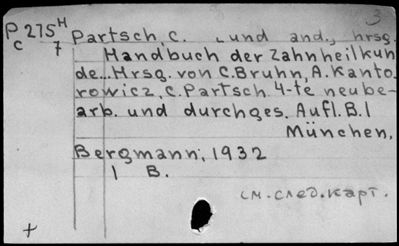 3
P 275 H Partsch, C. und and., hrsg.
C 7 Handbuch der Zahnheilkun
de... Hrsg. von C. Bruhn, A. Kanto
rowicz, C. Partsch. 4-te neube-
arb. und durchges. Aufl. B. I
München,
Bergmann, 1932
1 B.
см. след. карт.
+